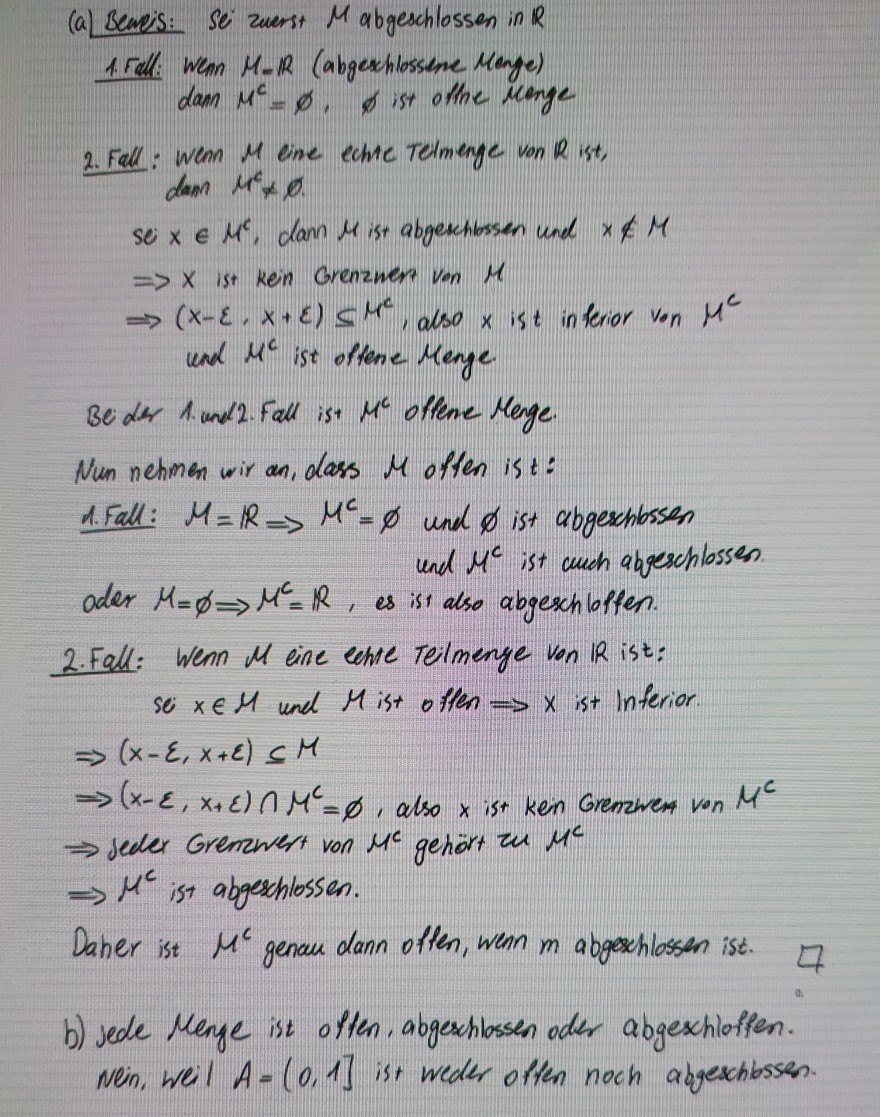 (a) Beweis: Sei zuerst M abgeschlossen in ℝ
1. Fall: Wenn M=ℝ (abgeschlossene Menge)
dann Mᶜ = ∅, ∅ ist offne Menge
2. Fall: Wenn M eine echte Teilmenge von ℝ ist,
dann Mᶜ ≠ ∅.
sei x ∈ Mᶜ, dann M ist abgeschlossen und x ∉ M
=> x ist kein Grenzwert von M
=> (x-ε, x+ε) ⊆ Mᶜ, also x ist inferior von Mᶜ
und Mᶜ ist offene Menge.
Bei der 1. und 2. Fall ist Mᶜ offene Menge.
Nun nehmen wir an, dass M offen ist:
1. Fall: M = ℝ => Mᶜ = ∅ und ∅ ist abgeschlossen
und Mᶜ ist auch abgeschlossen.
oder M=∅ => Mᶜ = ℝ, es ist also abgeschloffen.
2. Fall: Wenn M eine echte Teilmenge von ℝ ist:
sei x ∈ M und M ist offen => x ist Inferior.
=> (x-ε, x+ε) ⊆ M
=> (x-ε, x+ε) ∩ Mᶜ = ∅, also x ist kein Grenzwert von Mᶜ
=> Jeder Grenzwert von Mᶜ gehört zu Mᶜ
=> Mᶜ ist abgeschlossen.
Daher ist Mᶜ genau dann offen, wenn m abgeschlossen ist. □
b) Jede Menge ist offen, abgeschlossen oder abgeschloffen.
Nein, weil A = (0,1] ist weder offen noch abgeschlossen.